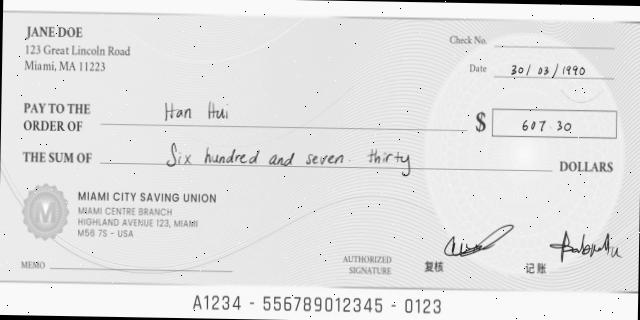 JANE DOE
123 Great Lincoln Road
Miami, MA 11223
Check No.
Date 30/03/1990
PAY TO THE
ORDER OF Han Hui
$ 607.30
THE SUM OF Six hundred and seven. thirty DOLLARS
M
MIAMI CITY SAVING UNION
MIAMI CENTRE BRANCH
HIGHLAND AVENUE 123, MIAMI
M56 7S - USA
MEMO
AUTHORIZED
SIGNATURE
复核
记账
A1234 - 556789012345 - 0123